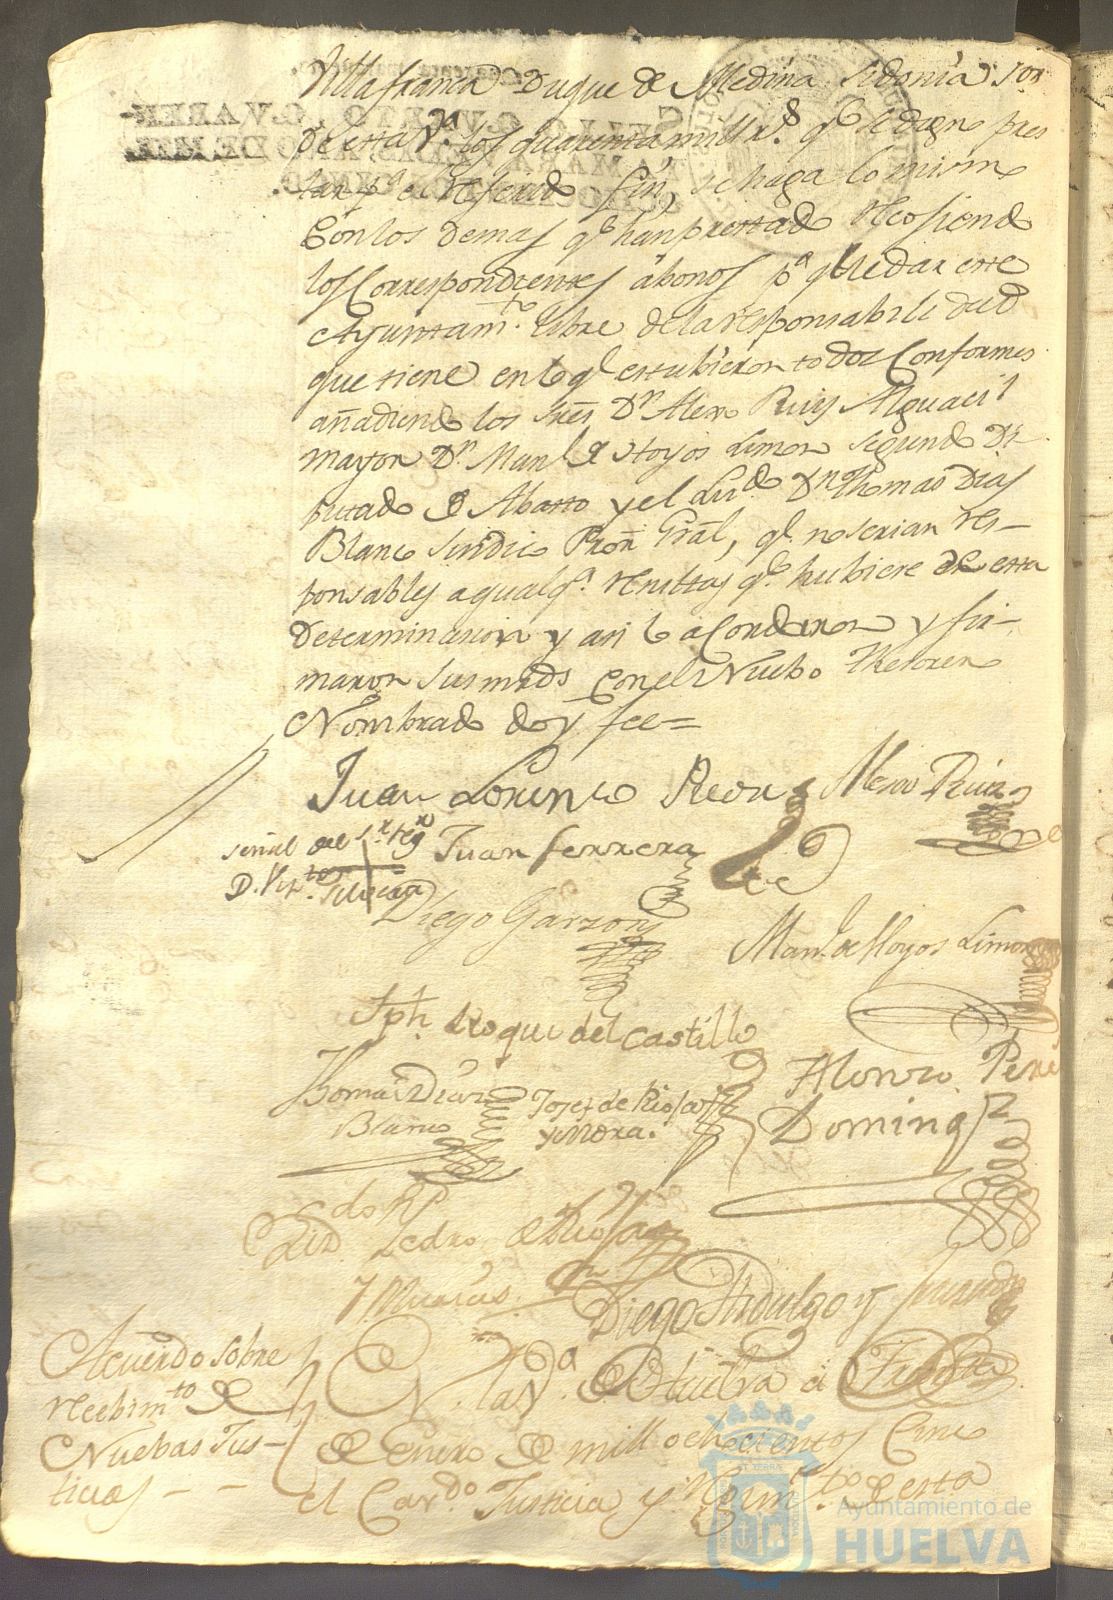 Villafranca Duque de Medina Sidonia Sor
de esta Va. los quarenta mill rs. qe. se dign pres
tar pa. el referido fin, se haga lo mismo
Con los demas qe. han prestado Recosiendo
los Correspondientes abonos pa. quedar este
Ayuntamto. libre de la responsabilidad
que tiene en lo ql. estubieron todos Conformes
añadiendo los Sres. Dn. Alexo Ruiz Alguacil
mayor Dn. Manl. de Hoyos Limon segundo Di
putado de Abasto y el Lizdo. Dn. Thomas Dias
Blanco Sindico Pror. Gral, qe. no serian res-
ponsables a qualqa. resultas qe. hubiere de esta
Determinacion y asi lo acordaron y fir-
maron Sus mrds con el Nuebo Thesorero
Nombrado doy fee=
Juan Lorenzo Redn
Alexo Ruiz
señal del Sr. Reg
D. Vizte. Silveira
Juan Ferrera
Diego Garzon
Manl. de Hoyos Limon
Jph. Roque del Castillo
Thomas Diaz
Blanco
Josef de Rioja
y Mora.
Alonzo Perez
Dominguez
Lizdo. Dn. Pedro de Rioja
Diego Hidalgo y
Acuerdo sobre
recebimto. de
Nuebas Jus-
ticias - - -
En la Va. de Huelva a
de Enero de mill ochocientos Cinco
el Cavdo. Justicia y Regimto. de esta
Ayuntamiento de
HUELVA